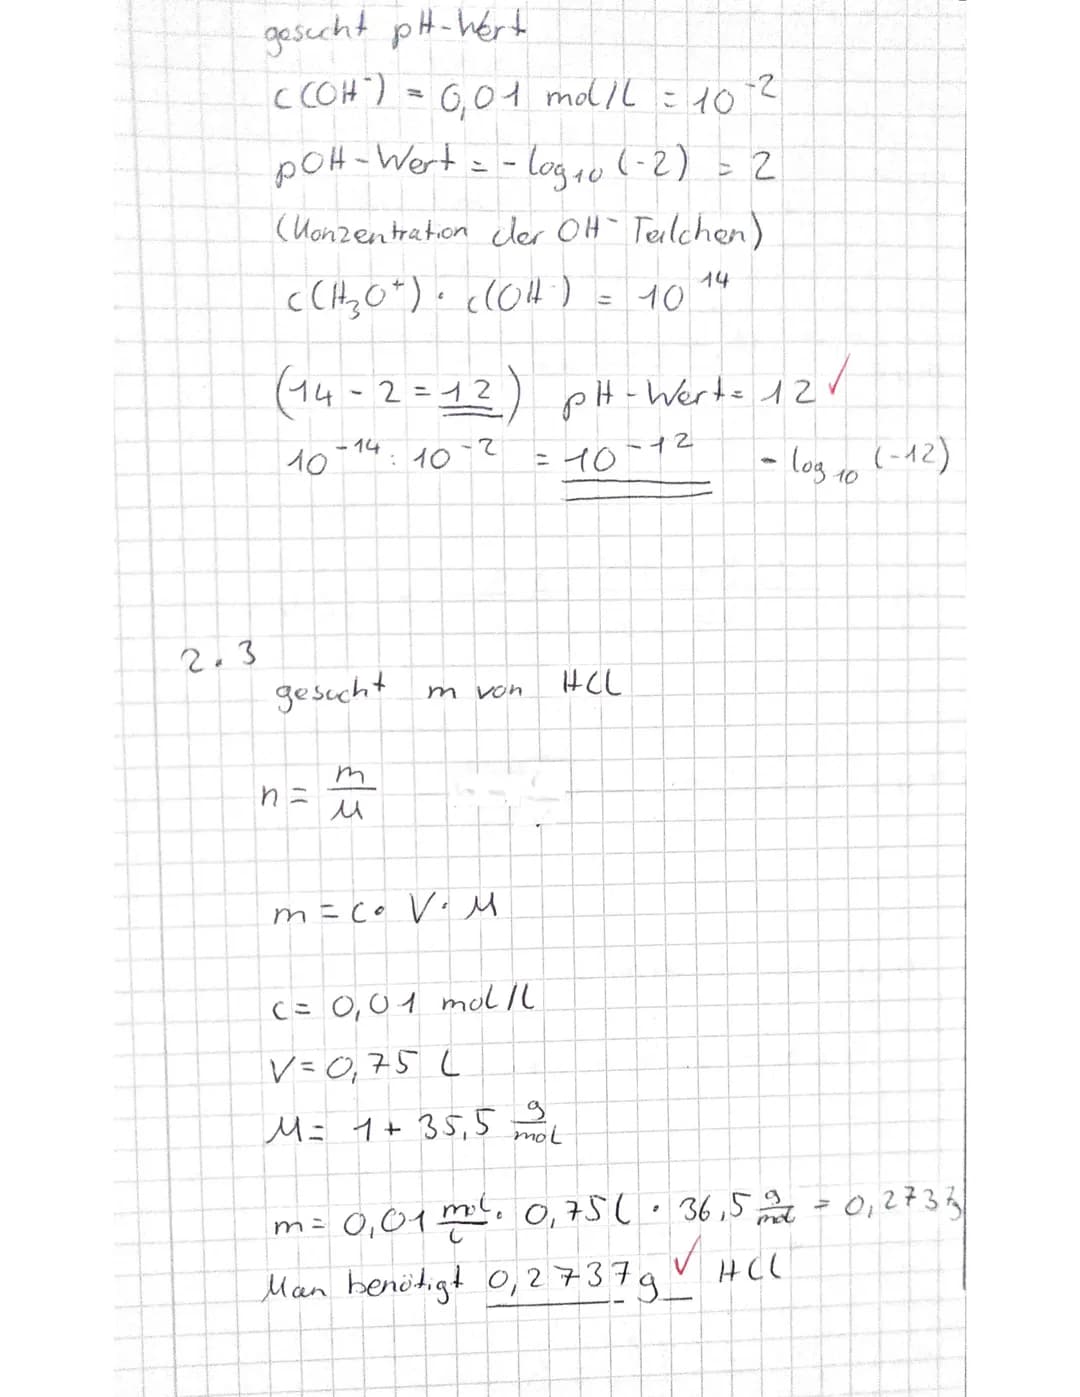 gesucht pH-Wert
c(OH⁻) = 0,01 mol/L = 10⁻²
pOH-Wert = -log₁₀ (-2) = 2
(Konzentration der OH⁻ Teilchen)
c(H₃O⁺) · c(OH⁻) = 10¹⁴
(14 - 2 = 12) pH-Wert = 12 ✓
10⁻¹⁴ : 10⁻² = 10⁻¹² - log₁₀ (-12)
2.3
gesucht m von HCL
n = m/M
m = c · V · M
c = 0,01 mol/L
V = 0,75 L
M = 1 + 35,5 g/mol
m = 0,01 mol/L · 0,75 L · 36,5 g/mol = 0,273
Man benötigt 0,2737g ✓ HCL